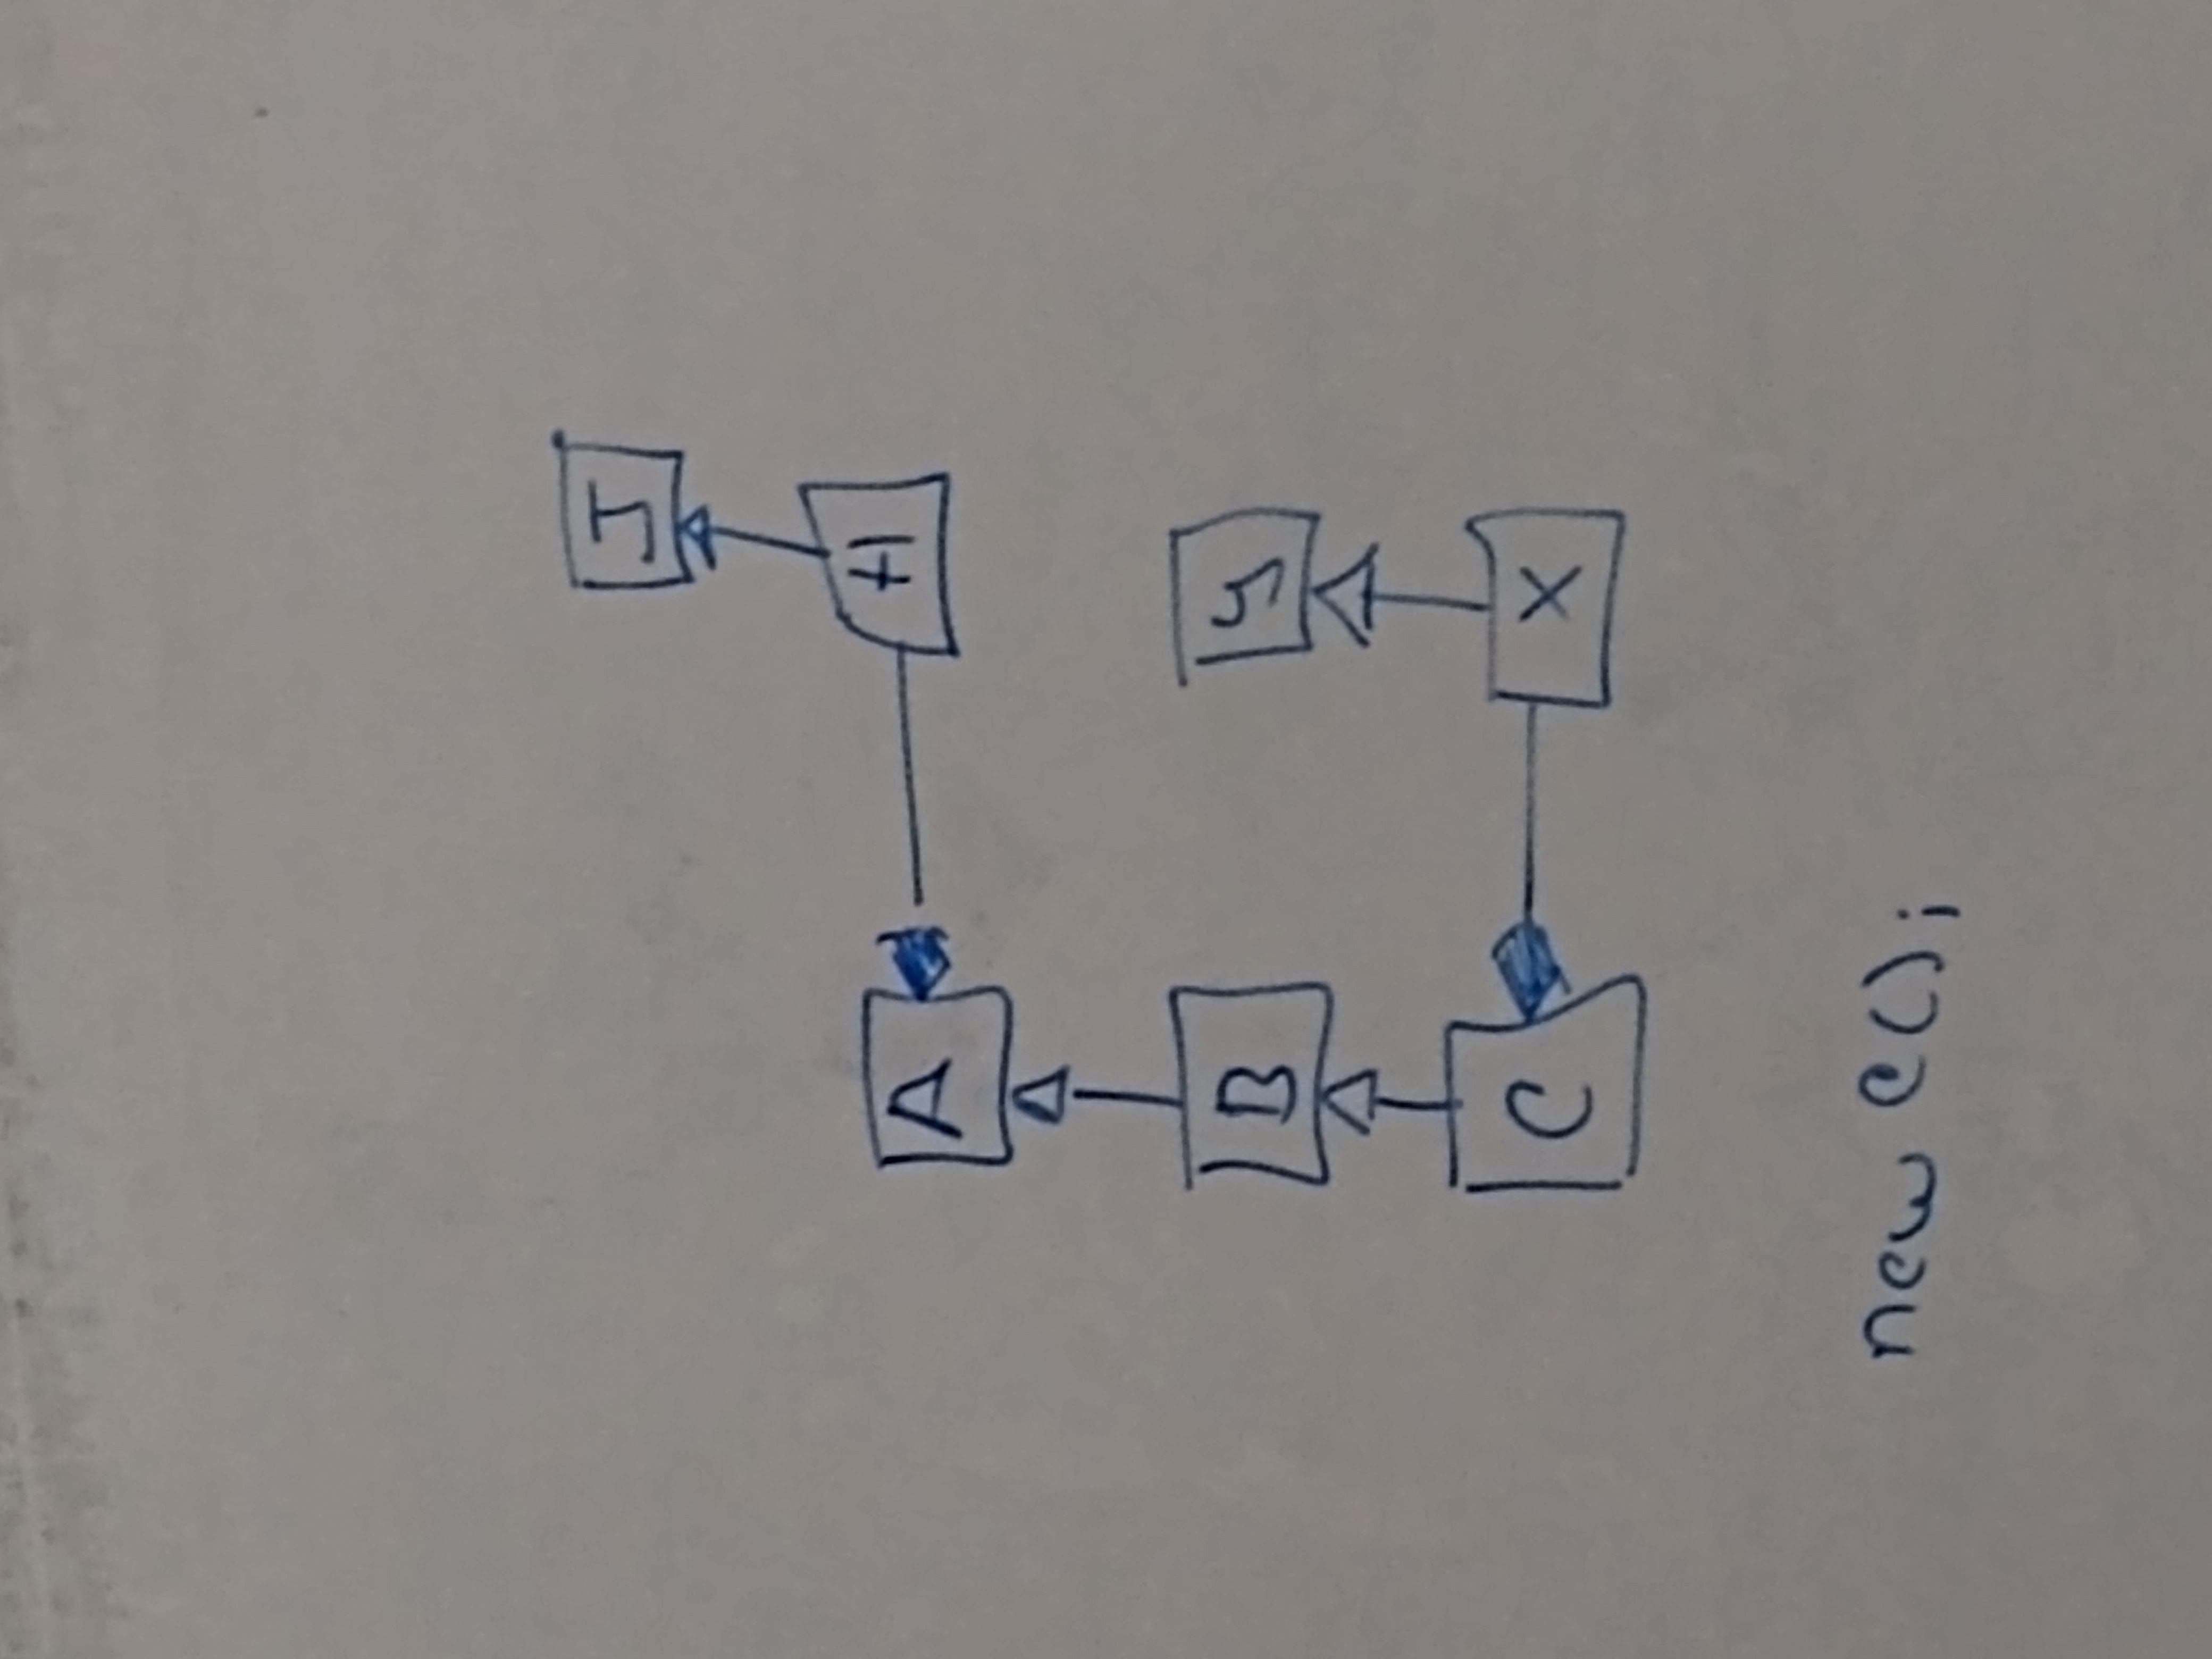 J
A H
B Y
C X
new C();